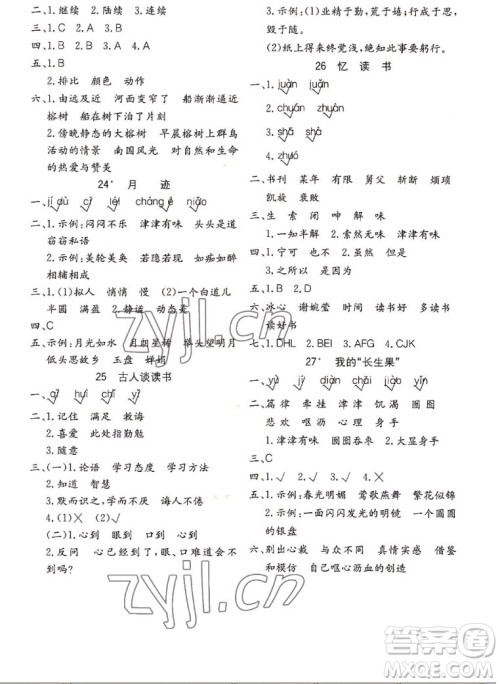 二、1.继续　2.陆续　3.连续
三、1.C　2.A　3.B
四、1.A　2.B　3.A　4.A
五、1.B
2.排比　颜色　动作
六、1.由远及近　河面变窄了　船渐渐逼近
榕树　船在树下泊了片刻
2.傍晚静态的大榕树　早晨榕树上群鸟
活动的情景　南国风光　对自然和生命
的热爱与赞美
24*　月　迹
二、1.示例:闷闷不乐　津津有味　头头是道
窃窃私语
2.示例:美轮美奂　若即若离　如痴如醉
相辅相成
三、1.(1)拟人　悄悄　慢　(2)一个白道儿
半圆　满盈　2.静态　动态美
四、C
五、示例:月光如水　月朗星稀　举头望明月
低头思故乡　玉盘　婵娟
25　古人谈读书
一、qǐ　huì　chí　yī
二、1.记住　满足　教诲
2.喜爱　此处指勤勉
3.随意
三、(一)1.论语　学习态度　学习方法
2.知道　智慧
3.默而识之,学而不厌,诲人不倦
4.(1)×　(2)√
(二)1.心到　眼到　口到　心到
2.反问　心已经到了,眼、口难道会不
到吗?
3.示例:(1)业精于勤,荒于嬉;行成于思,
毁于随。
(2)纸上得来终觉浅,绝知此事要躬行。
26　忆　读　书
一、1.juàn
2.chuán　zhuàn
3.shā
4.zhuó
二、书刊　某年　有限　舅父　斩断　烦琐
凯旋　衰败
三、生　索　囫　呻　解　味
1.一知半解　2.索然无味
四、1.宁可　也不　2.虽然　但是
3.不是　就是
五、1.B　2.B
六、冰心　谢婉莹　读书好　多读书
读好书
七、1.DHL　2.BEI　3.AFG　4.CJK
27*　我的“长生果”
二、篇　律　牵　挂　津　津　饥　渴　囫　囵
悲　欢　呕　沥　心　理　身　手
1.津津有味　囫囵吞枣　2.大显身手
三、C
四、1.√　2.√　3.√　4.×
五、1.示例:春光明媚　莺歌燕舞　繁花似锦
2.示例:一面闪闪发光的明镜　一个圆圆
的银盘
六、别出心裁　与众不同　真情实感　借鉴
和模仿　自己呕心沥血的创造
zyjl.cn
zyjl.cn
答案圈
MXQE.COM